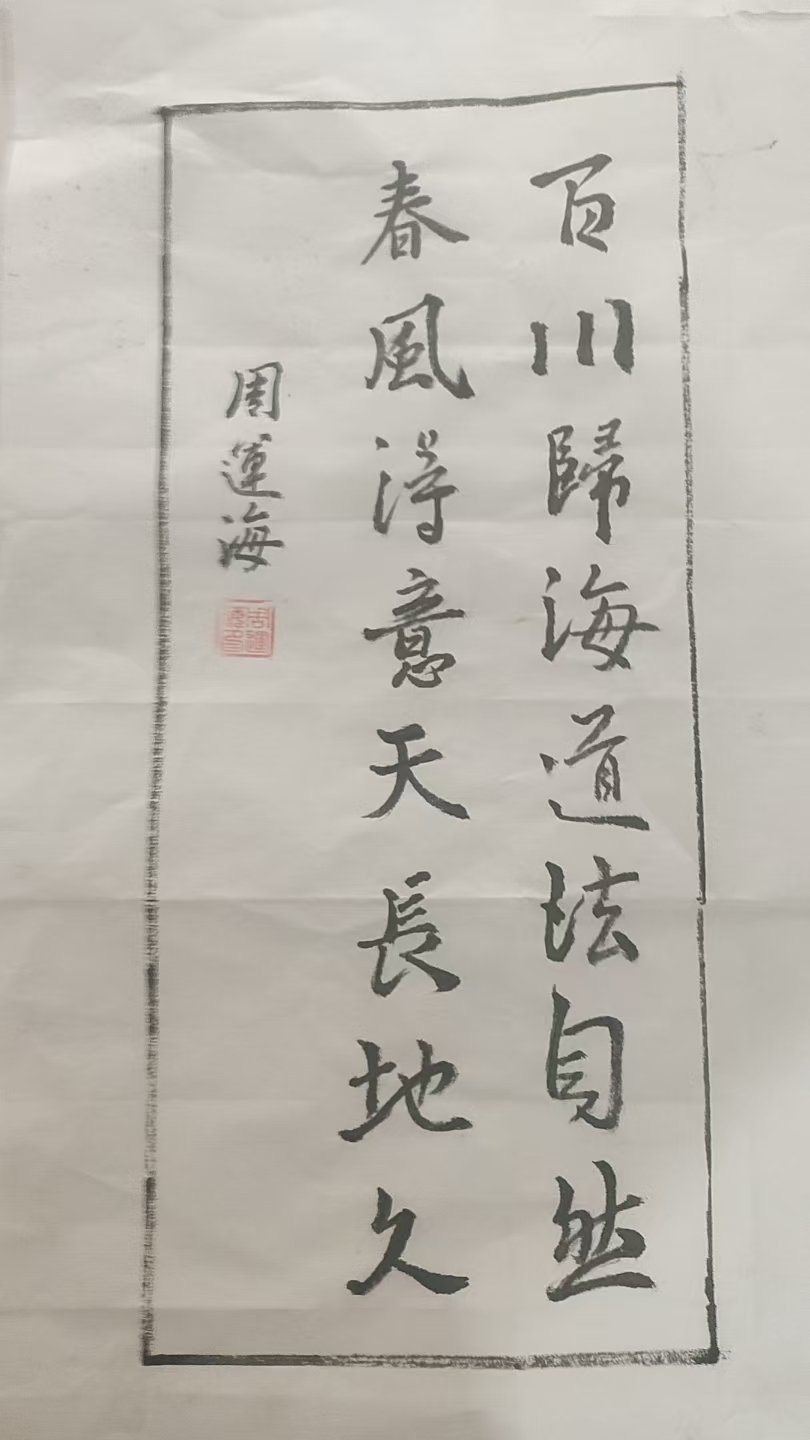 百川歸海道法自然
春風得意天長地久
周運海